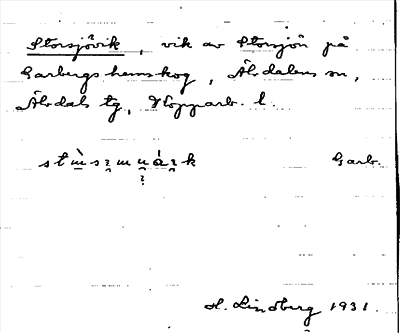 Storsjövik, vik av Storsjön på
Garbergs hemskog, Älvdalens sn,
Älvdals tg, Kopparb. l.
Garb.
H. Lindberg 1931.